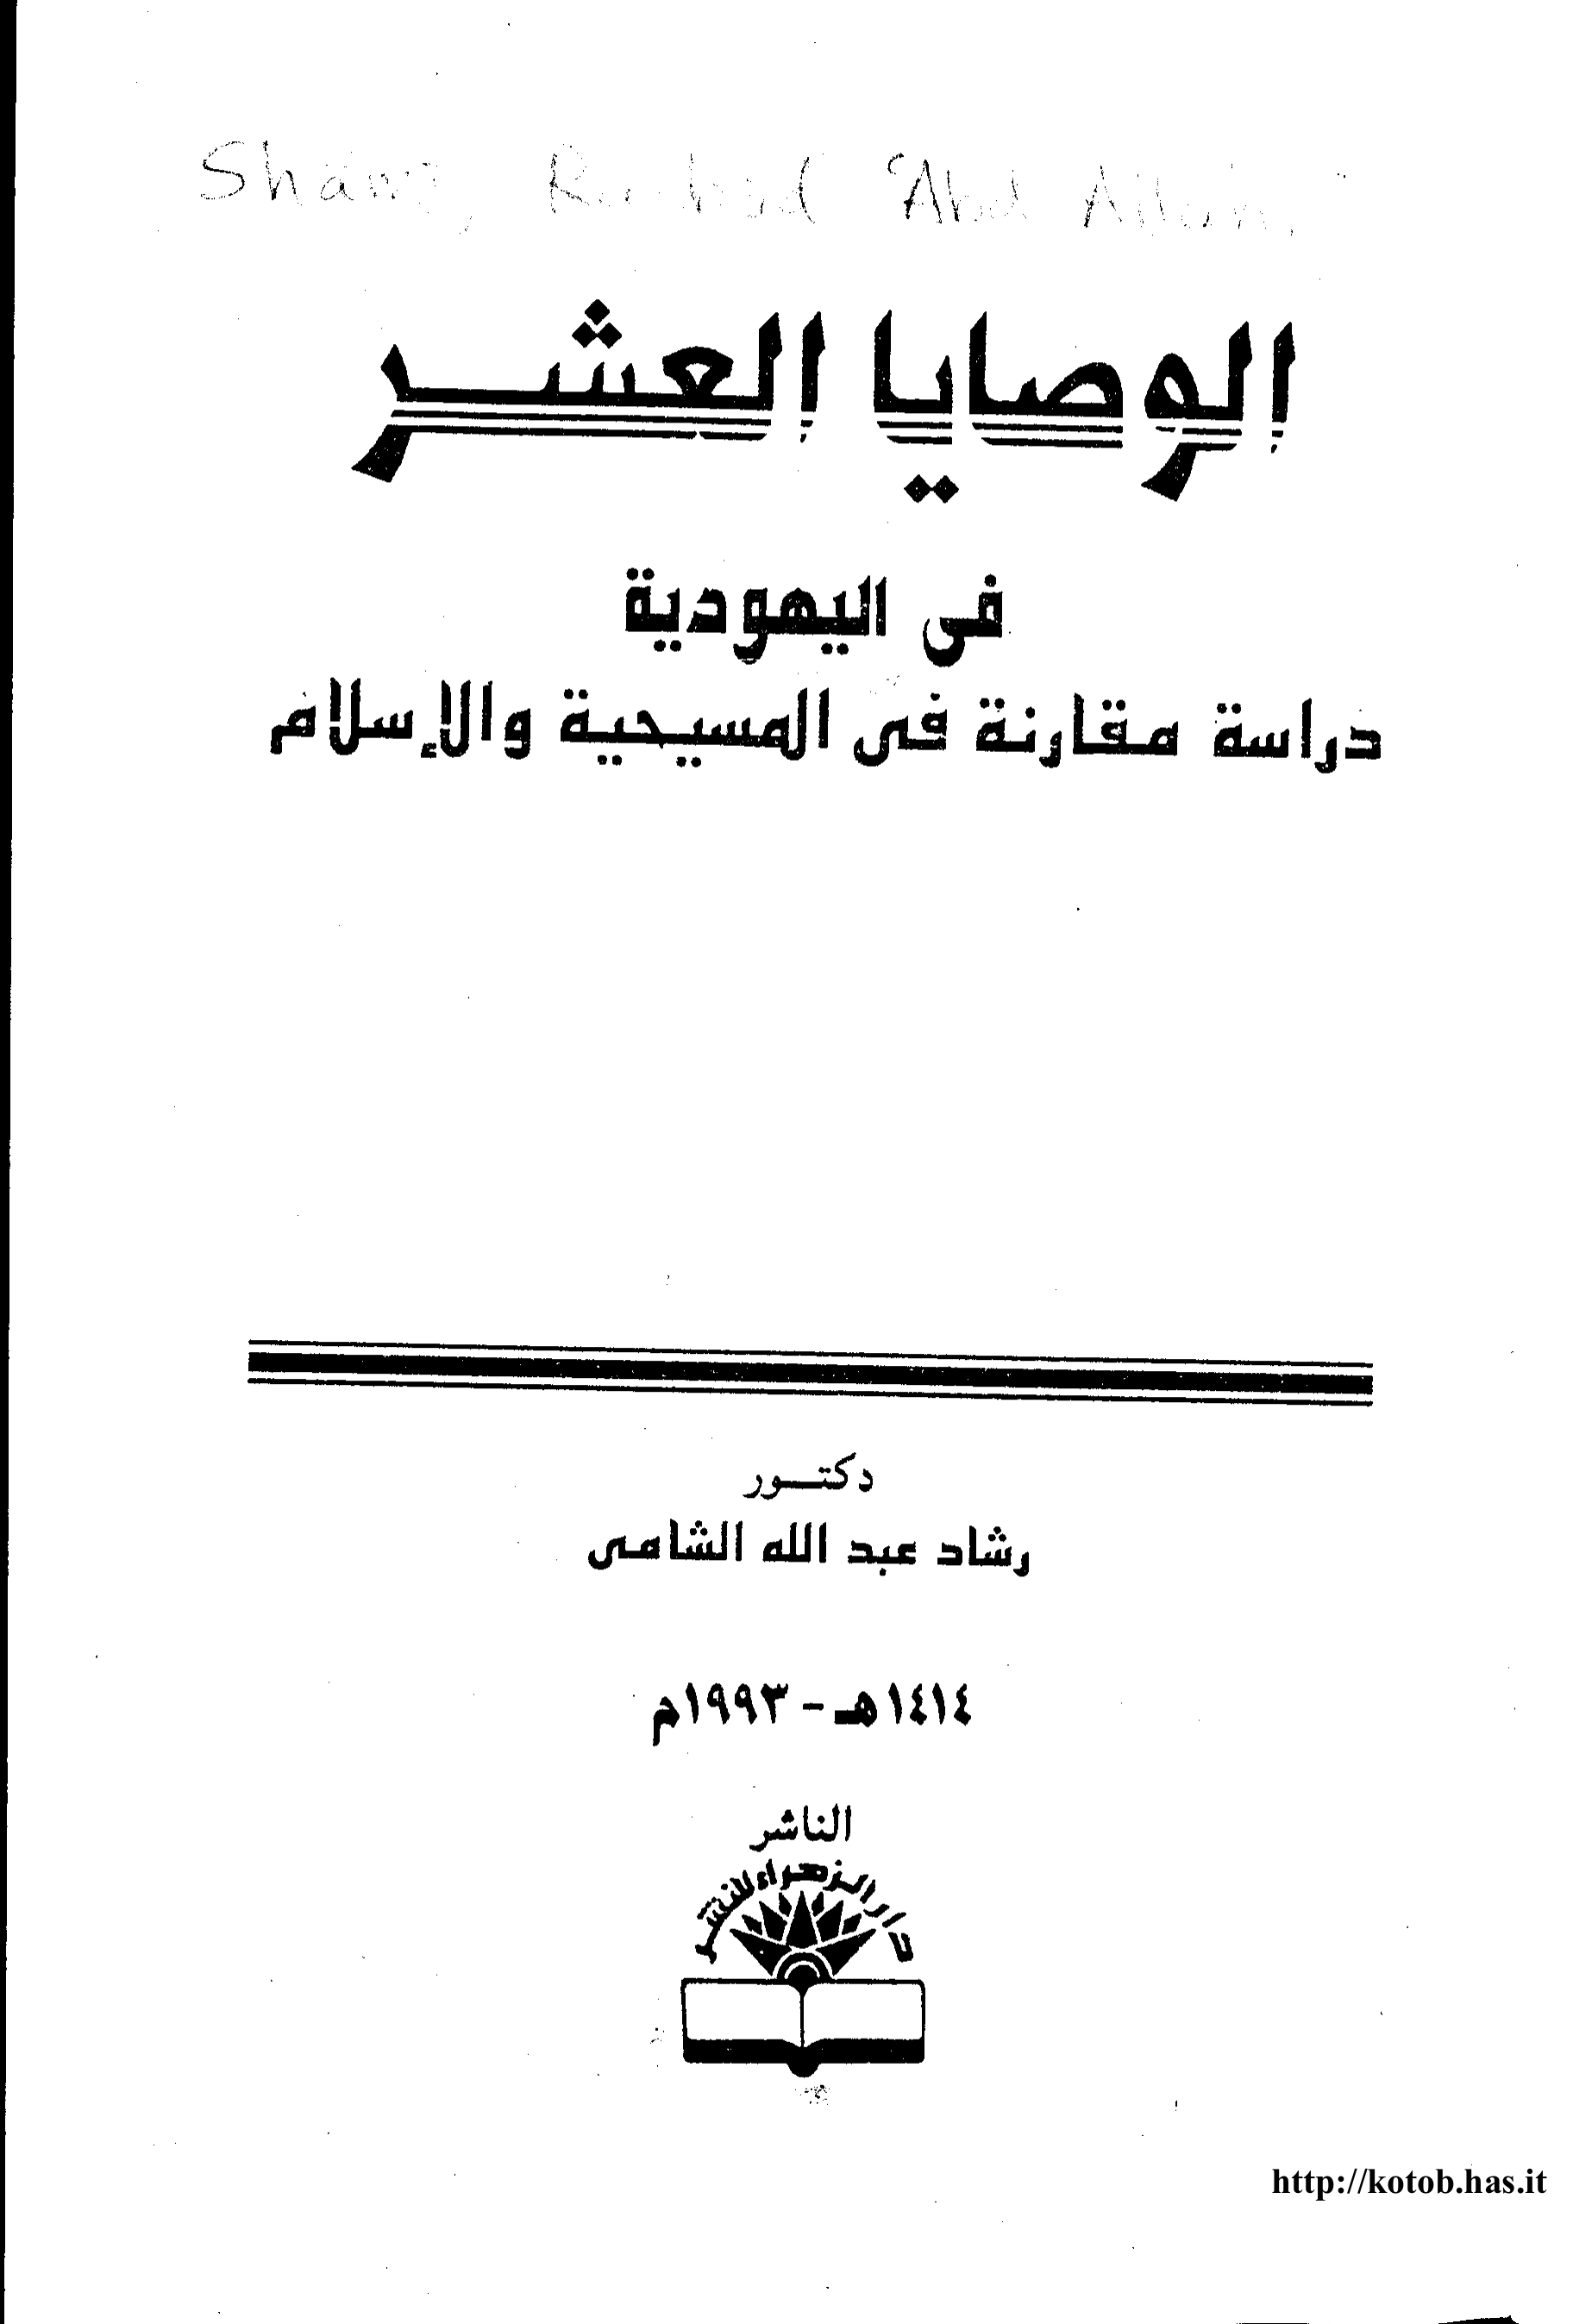 الوصايا العشر
فى اليهودية
دراسة مقارنة فى المسيحية والإسلام
دكتور
رشاد عبد الله الشامى
١٤١٤هـ - ١٩٩٣م
الناشر
دار الزهراء للنشر
http://kotob.has.it